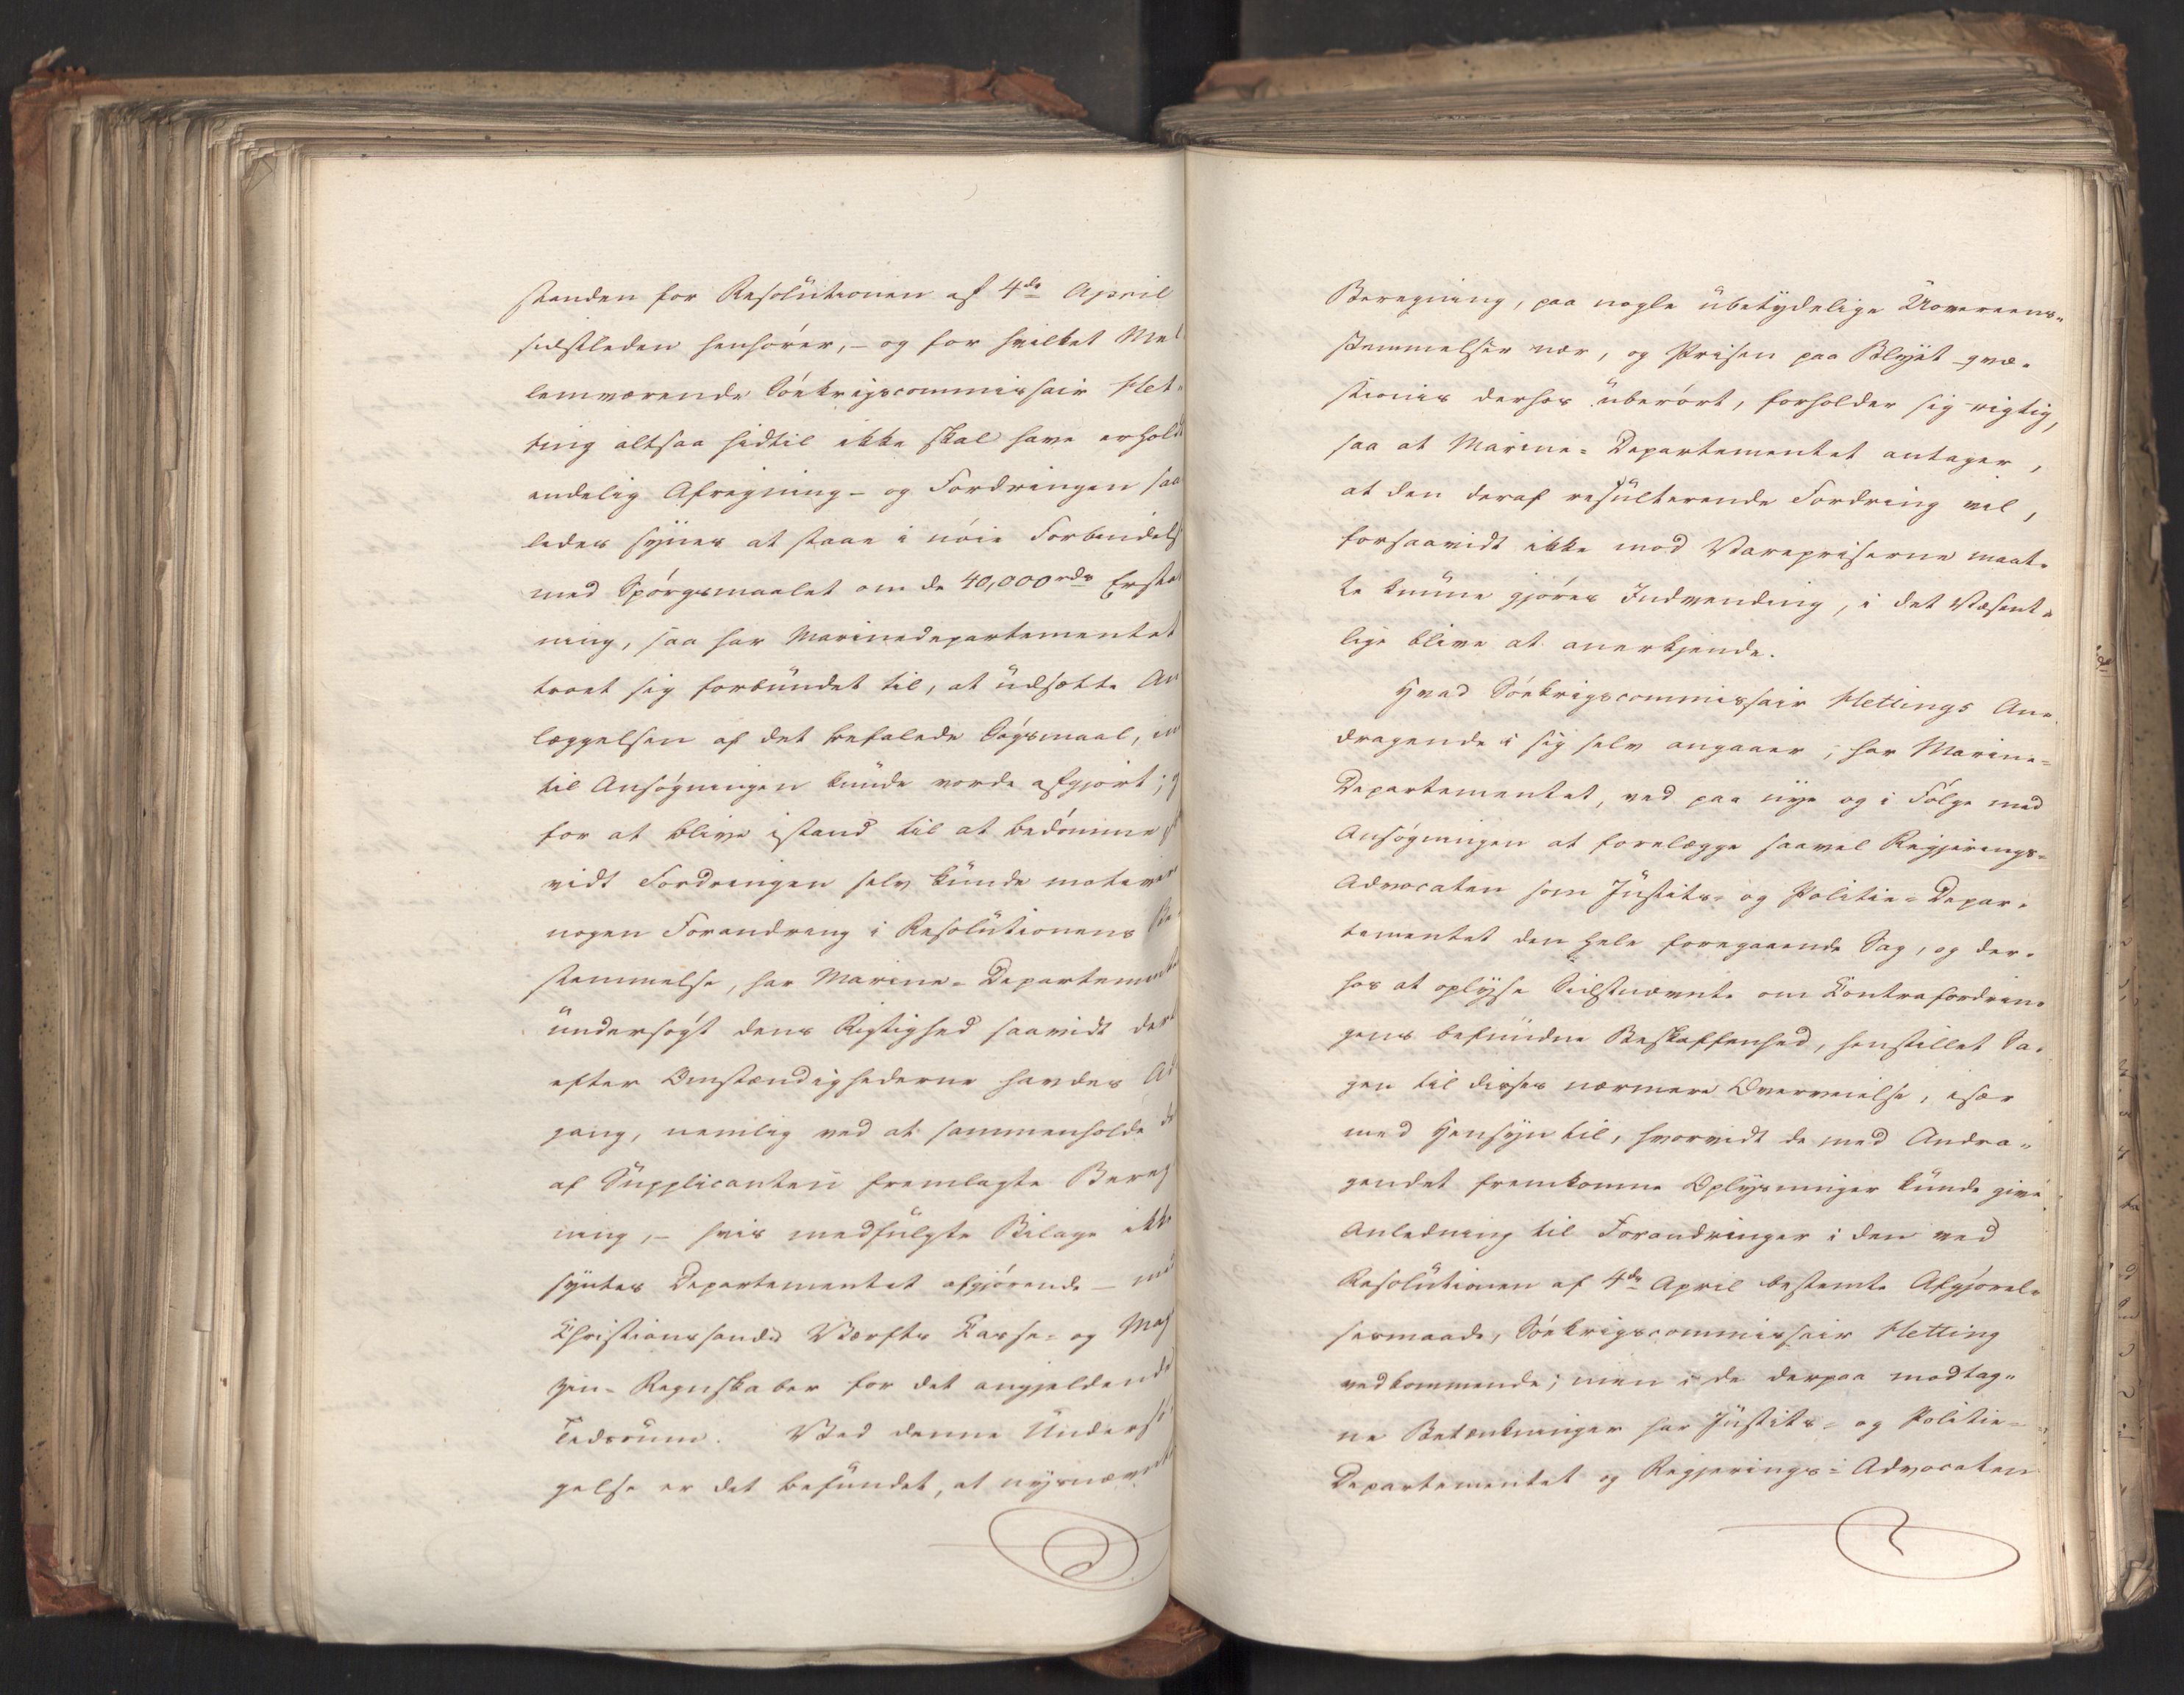 standen for Resolutionen af 4de April
sidstleden henhörer, – og for hvilket Mel
lemværende Söekrigscommissair Het-
ting altsaa hidtil ikke skal have erholdt
endelig Afregning – og Fordringen saa
ledes synes at staae i nöie Forbindels
med Spörgsmaalet om de 40,000 rds Erstat
ning, saa har Marinedepartementet
troet sig forbundet til, at udsætte An
læggelsen af det befalede Sögsmaal, ind
til Ansögningen kunde vorde afgjort; og
for at blive istand til at bedömme hvor
vidt Fordringen selv kunde motivere
nogen Forandring i Resolutionens Be-
stemmelse, har Marine-Departementet
undersögt dens Rigtighed saavidt dertil
efter Omstændighederne havdes Ad
gang, nemlig ved at sammenholde de
af Supplicanten fremlagte Bereg
ning, – hvis medfulgte Bilage ikke
syntes Departementet afgjörende – med
Christianssands Værfts Casse- og Maga
zin-Regnskaber for det angjeldende
Tidsrum. Ved denne Undersö-
gelse er det befundet, at nysnævnte
Beregning, paa nogle ubetydelige Uovereens-
stemmelser nær, og Prisen paa Blyet qvæ-
stionis derhos uberört, forholder sig rigtig,
saa at Marine-Departementet antager,
at den deraf resulterende Fordring vil,
forsaavidt ikke mod Varepriserne maat-
te kunne gjöres Indvending, i det Væsent-
lige blive at anerkjende.
Hvad Söekrigscommissair Hettings An-
dragende i sig selv angaaer, har Marine-
Departementet, ved paa nye og i Fölge med
Ansögningen at forelægge saavel Regjerings-
Advocaten som Justits- og Politie-Depar-
tementet den hele foregaaende Sag, og der-
hos at oplyse Sidstnævnte om Contrafordrin-
gens befundne Beskaffenhed, henstillet Sa-
gen til disses nærmere Overveielse, især
med Hensyn til, hvorvidt de med Andra-
gendet fremkomne Oplysninger kunde give
Anledning til Forandringer i den ved
Resolutionen af 4de April bestemte Afgjörel-
sesmaade, Söekrigscommissair Hetting
vedkommende; men i de derpaa modtag-
ne Betænkninger har Justits- og Politie-
Departementet og Regjerings-Advocaten